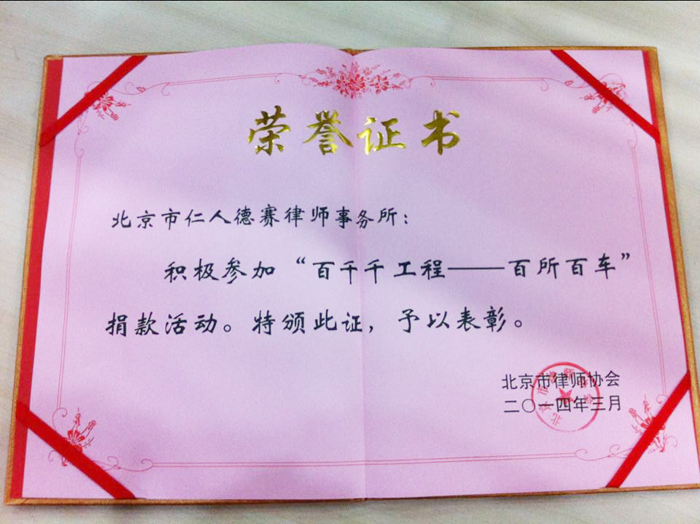 荣誉证书
北京市仁人德赛律师事务所：
积极参加“百千千工程——百所百车”
捐款活动。特颁此证，予以表彰。
北京市律师协会
二〇一四年三月